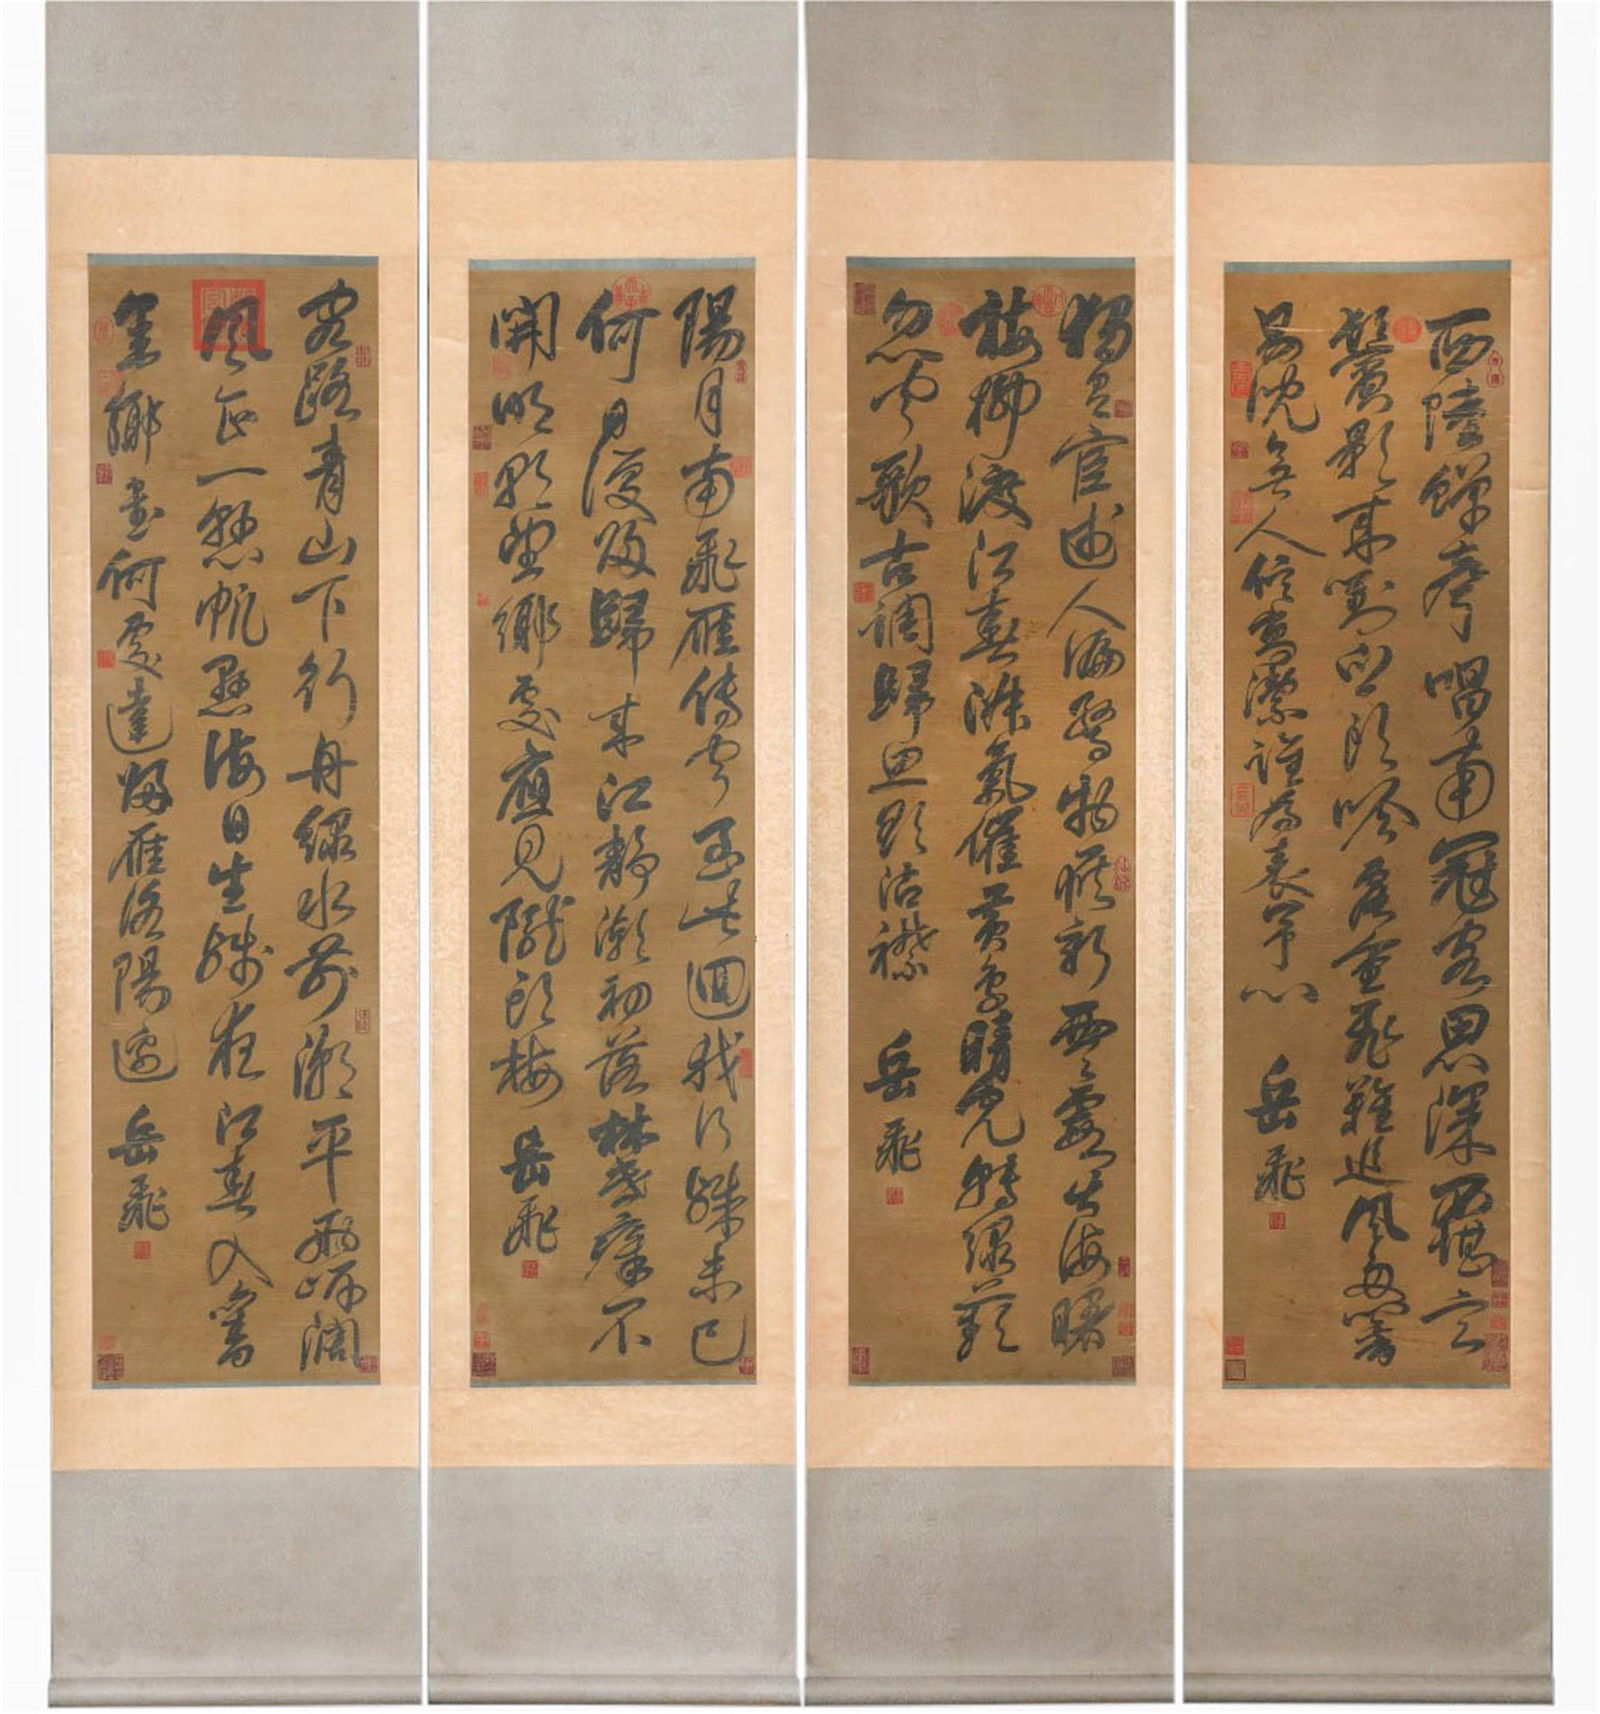 西陸蟬聲唱南冠客思深不堪玄
鬢影來對白頭吟露重飛難進風多響
易沈無人信高潔誰為表予心 岳飛
獨有宦遊人偏驚物候新雲霞出海曙
梅柳渡江春淑氣催黃鳥晴光轉綠蘋
忽聞歌古調歸思欲沾襟 岳飛
陽月南飛雁傳聞至此迴我行殊未已
何日復歸來江靜潮初落林昏瘴不
開明朝望鄉處應見隴頭梅 岳飛
客路青山下行舟綠水前潮平兩岸闊
風正一懸帆海日生殘夜江春入舊
年鄉書何處達歸雁洛陽邊 岳飛